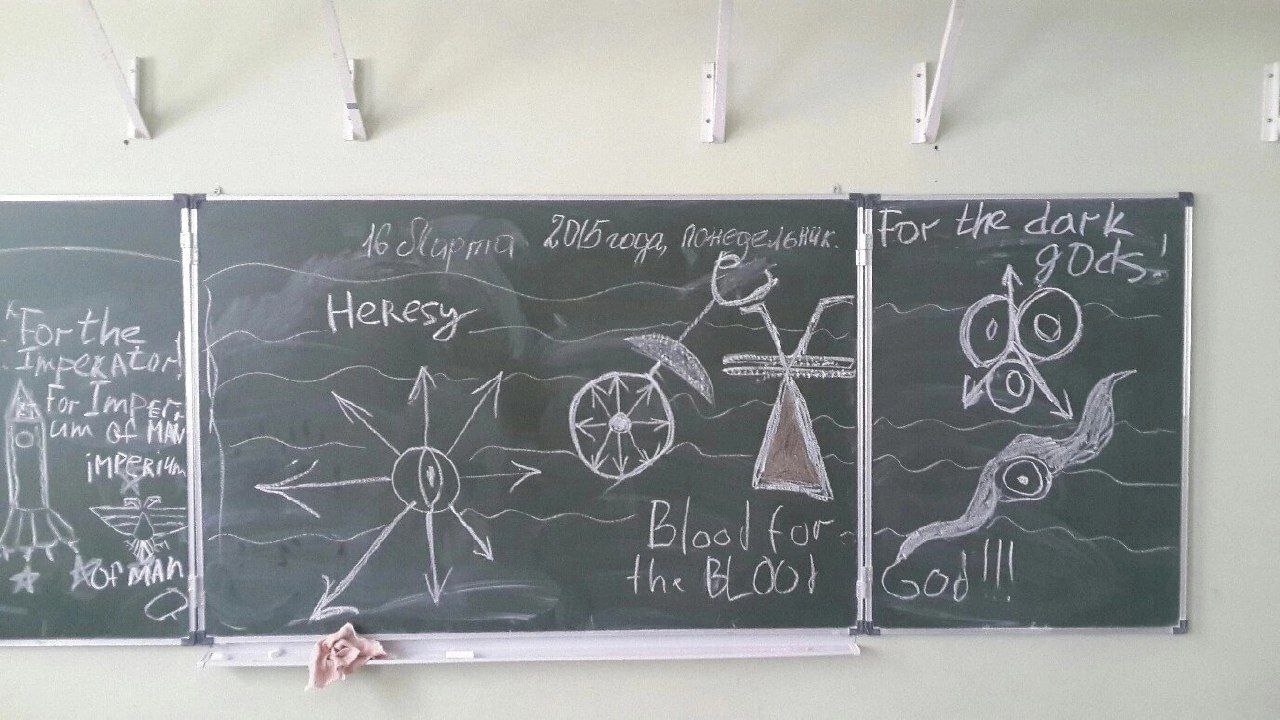 For the
Imperator!
For Imper
ium of MAN
iMPERIUM
OF MAN
16 Марта 2015 года, понедельник.
Heresy
Blood for
the BLOOd
For the dark
gods!
God!!!